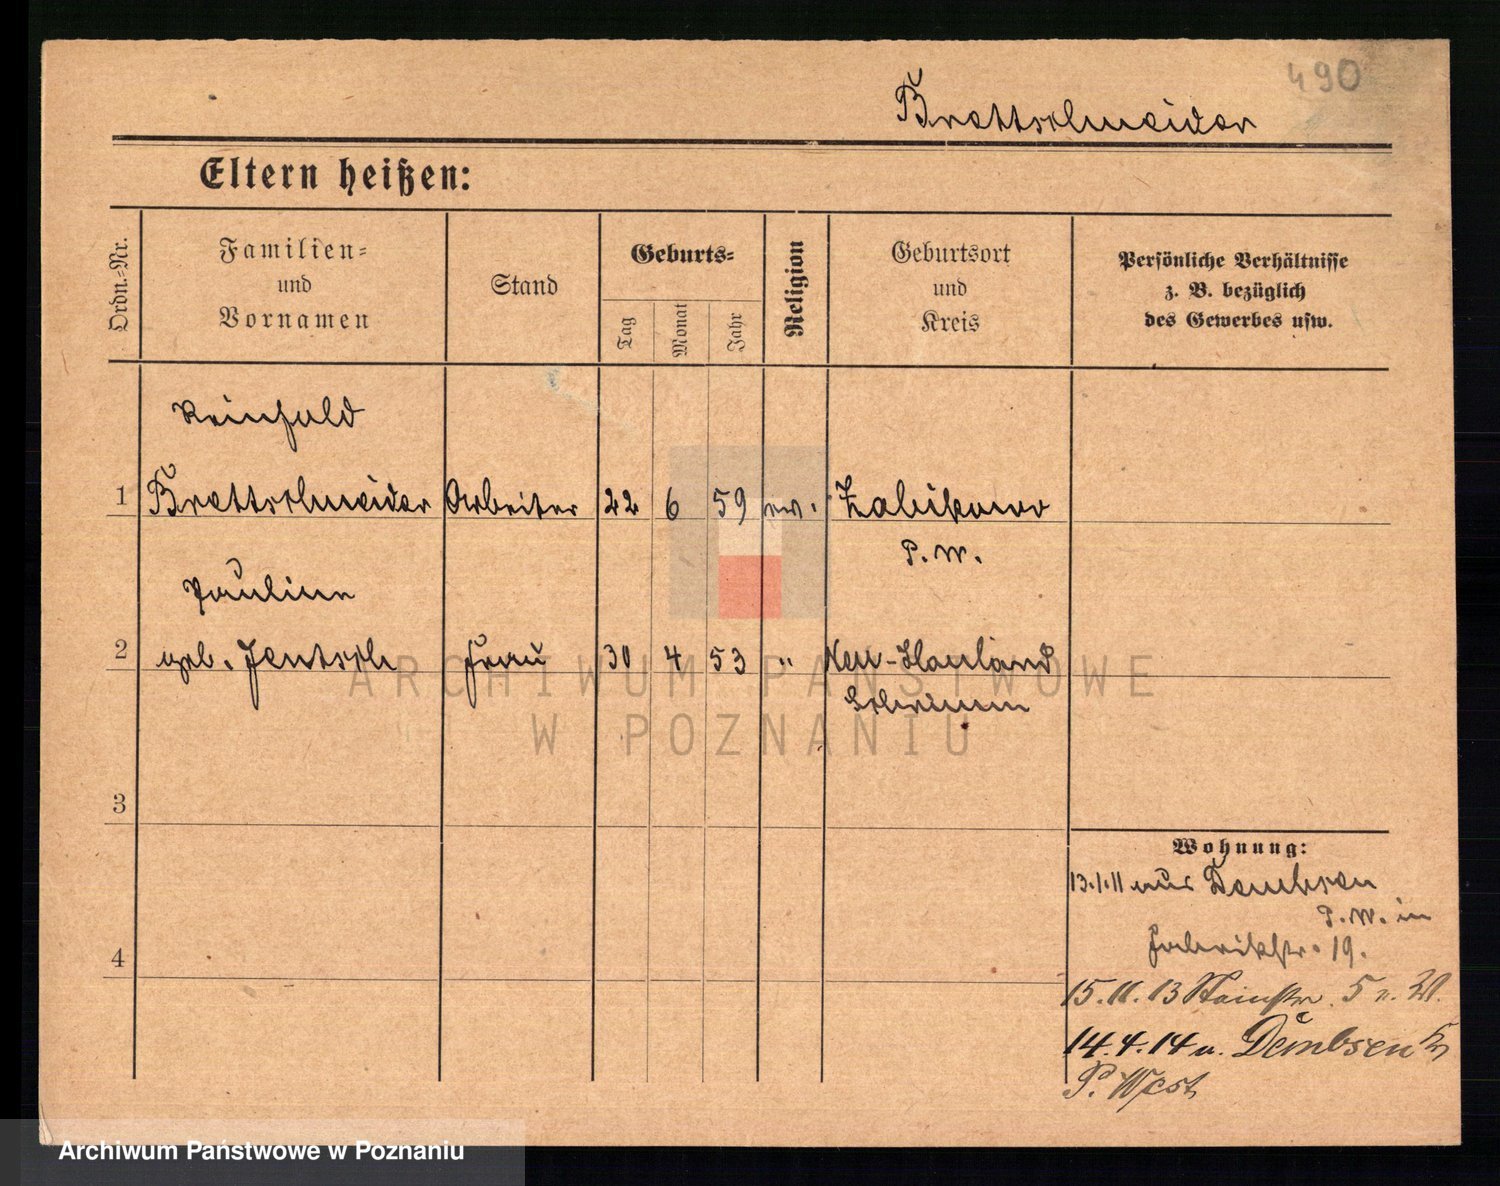 490
Brettschneider
Eltern heißen:
Ordn.-Nr.
Familien-
und
Vornamen
Stand
Geburts-
Tag
Monat
Jahr
Religion
Geburtsort
und
Kreis
Persönliche Verhältnisse
z. B. bezüglich
des Gewerbes usw.
Reinhold
1 Brettschneider Arbeiter 22 6 59 ev. Zabikowo
P. W.
Pauline
2 geb. Jentsch Frau 30 4 53 " Neu-Hauland
Schrimm
3
4
Wohnung:
13.1.11 aus Dembsen
P. W. in
Fabrikstr. 19.
15.11.13 5
14.4.14 n. Dembsen
P. West
ARCHIWUM PAŃSTWOWE
W POZNANIU
Archiwum Państwowe w Poznaniu